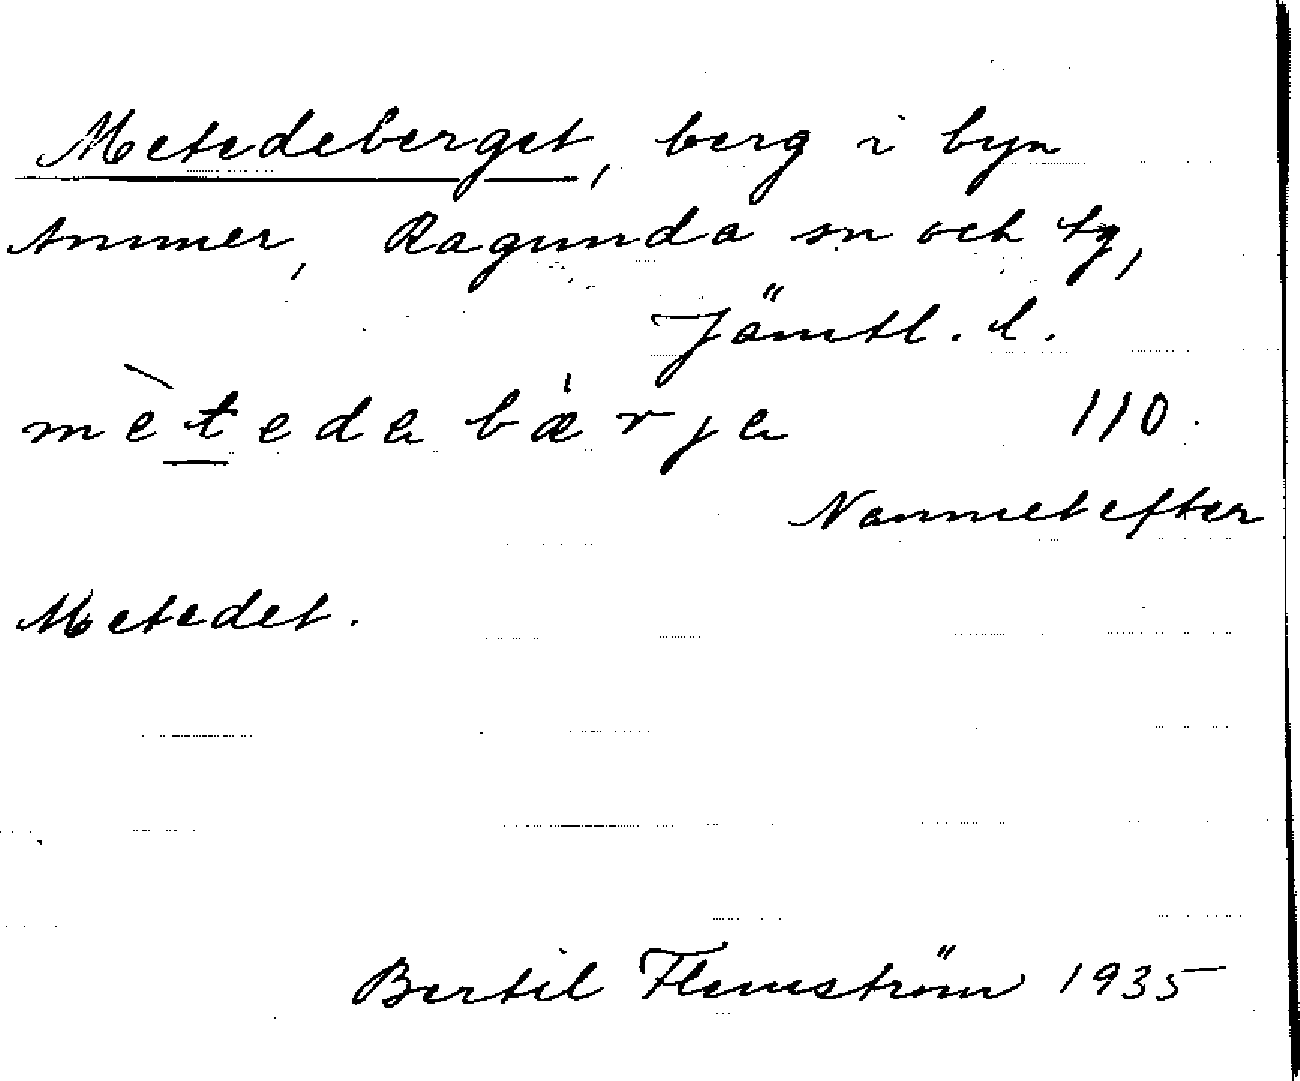 Metedeberget, berg i byn
Ammer, Ragunda sn och tg,
Jämtl. l.
mètedabärja 110.
Namnet efter
Metedet.
Bertil Flemström 1935